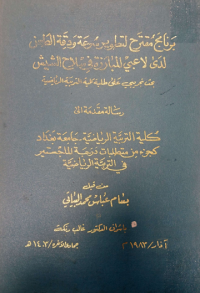 برنامج مقترح لتطوير سرعة ودقة الطعن
لدى لاعبي المبارزة بسلاح الشيش
بحث تجريبي على طلبة كلية التربية الرياضية
رسالة مقدمة الى
كلية التربية الرياضية - جامعة بغداد
كجزء من متطلبات درجة الماجستير
في التربية الرياضية
من قبل
بسام عباس محمد البياتي
باشراف الدكتور
آذار / ١٩٨٣ م
جمادى الآخرة / ١٤٠٣ هـ